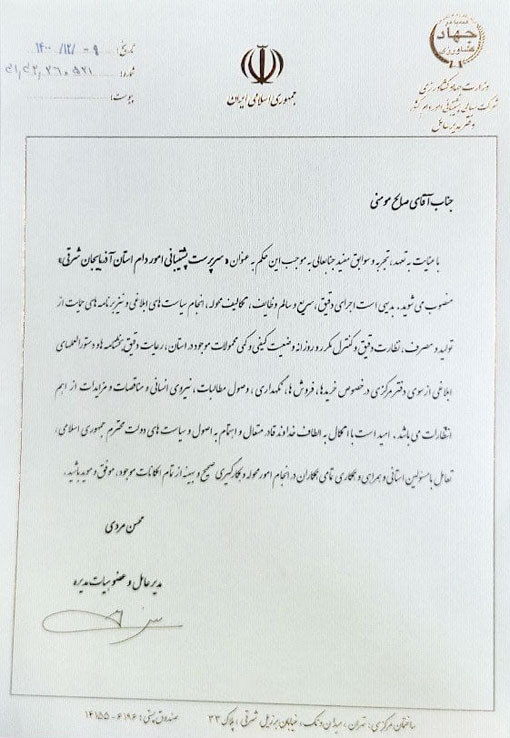 جهاد
کشاورزی
وزارت جهاد کشاورزی
شرکت سهامی پشتیبانی امور دام کشور
دفتر مدیر عامل
جمهوری اسلامی ایران
تاریخ: ۱۴۰۰/۱۲/۰۹
شماره:
پیوست:
جناب آقای صالح مومنی
با عنایت به تعهد، تجربه و سوابق مفید جنابعالی به موجب این حکم به عنوان «سرپرست پشتیبانی امور دام استان آذربایجان شرقی»
منصوب می شوید. بدیهی است اجرای دقیق، سریع و سالم وظایف، تکالیف محوله، انجام سیاست های ابلاغی و نیز برنامه های حمایت از
تولید و مصرف، نظارت دقیق و کنترل مکرر و روزانه وضعیت کیفی و کمی محمولات موجود در استان، رعایت دقیق بخشنامه ها و دستورالعملهای
ابلاغی از سوی دفتر مرکزی در خصوص خریدها، فروش ها، نگهداری، وصول مطالبات، نیروی انسانی و مناقصات و مزایدات از اهم
انتظارات می باشد. امید است با اتکال به الطاف خداوند قادر متعال و اهتمام به اصول و سیاست های دولت محترم جمهوری اسلامی،
تعامل با مسئولین استانی و همراهی و همکاری تمامی همکاران در انجام امور محوله و بکارگیری صحیح و بهینه از تمام امکانات موجود، موفق و موید باشید.
محسن مردی
مدیر عامل و عضو هیات مدیره
ساختمان مرکزی: تهران، میدان ونک، خیابان برزیل شرقی، پلاک ۳۳ صندوق پستی: ۶۱۹۶-۱۴۱۵۵